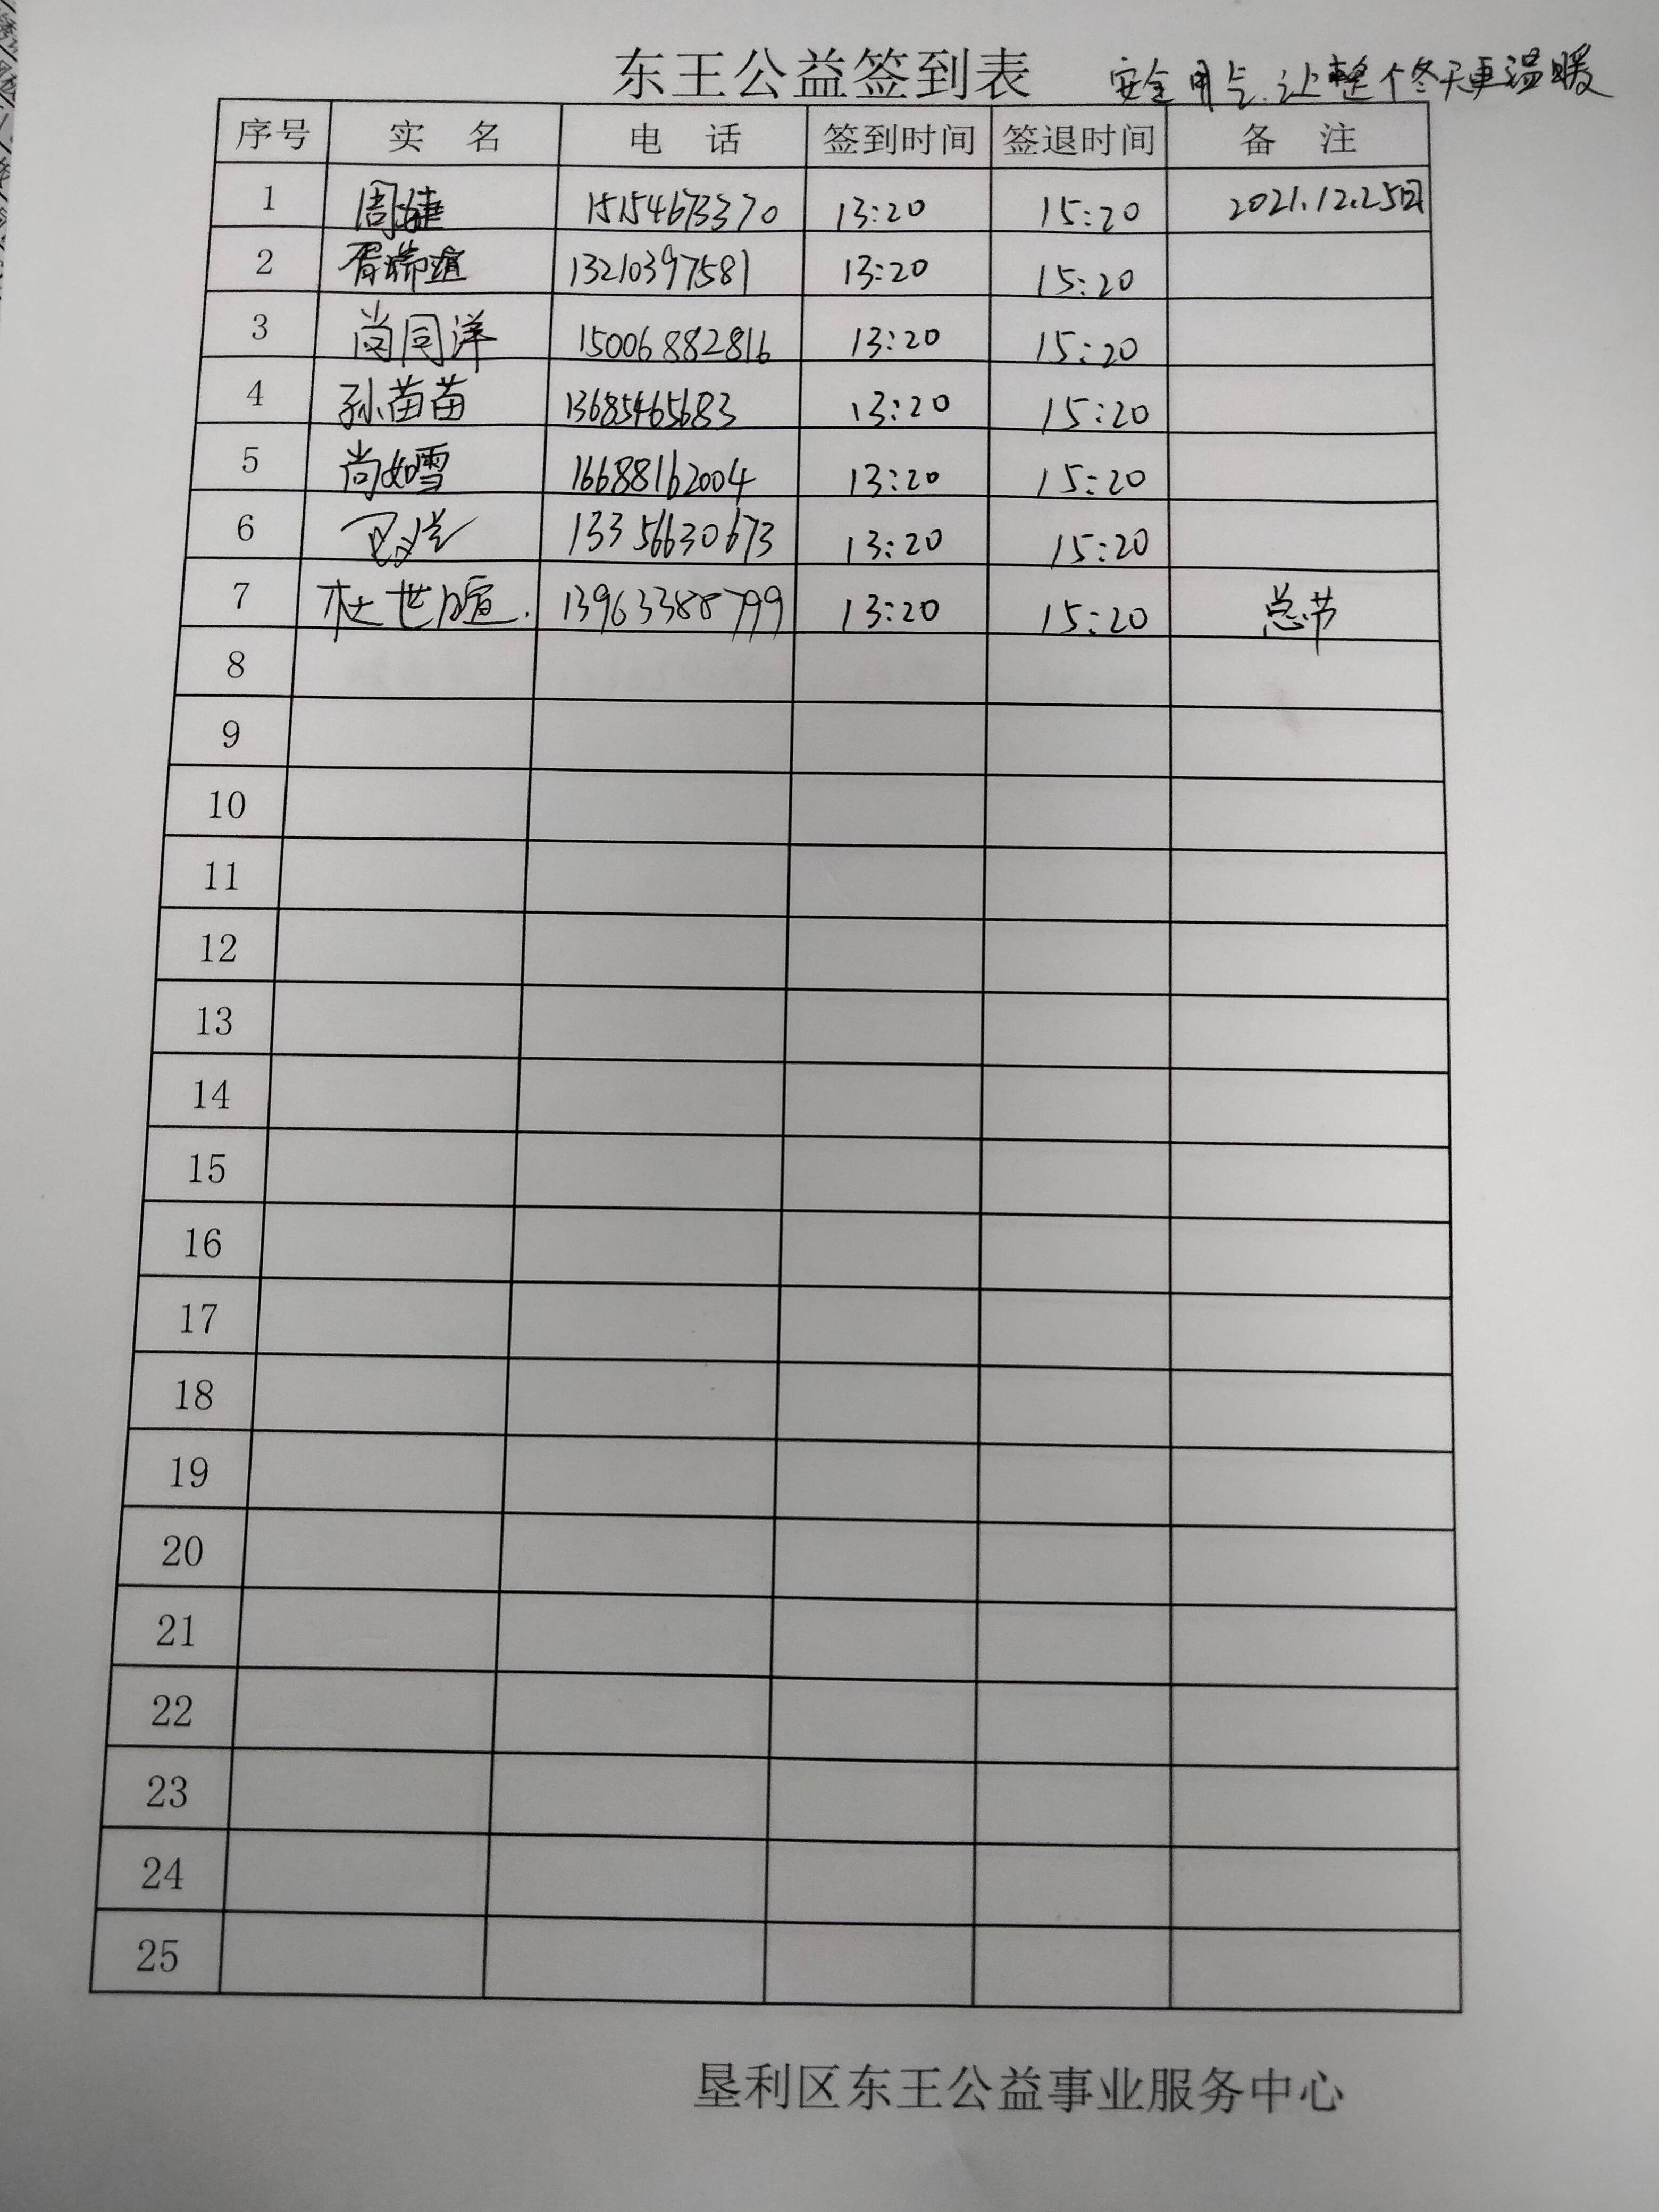 东王公益签到表 安全用气.让整个冬天更温暖
序号 实 名 电 话 签到时间 签退时间 备 注
1 周婕 15154673370 13:20 15:20 2021.12.25日
2 胥瑞 13210397581 13:20 15:20
3 尚同洋 15006882816 13:20 15:20
4 孙苗苗 13685465683 13:20 15:20
5 尚如雪 16688162004 13:20 15:20
6 13356630673 13:20 15:20
7 杜世暄. 13963388799 13:20 15:20 总节
8
9
10
11
12
13
14
15
16
17
18
19
20
21
22
23
24
25
垦利区东王公益事业服务中心